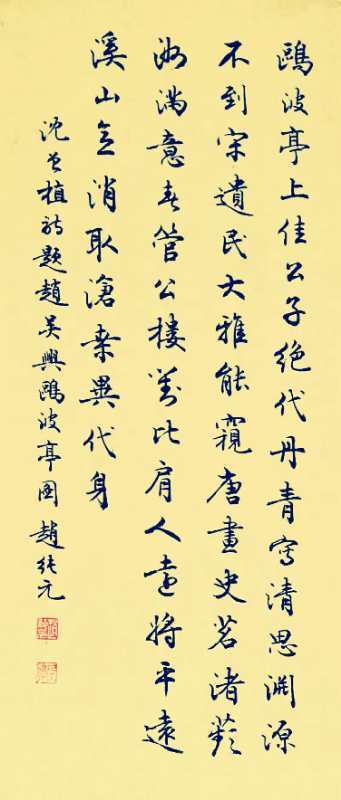 鷗波亭上佳公子絶代丹青寫清思淵源
不到宋遺民大雅能窺唐畫史苕渚蘋
洲滿意春管公樓對比肩人遠將平遠
溪山意消取滄桑異代身
沈曾植詩題趙吳興鷗波亭圖趙元